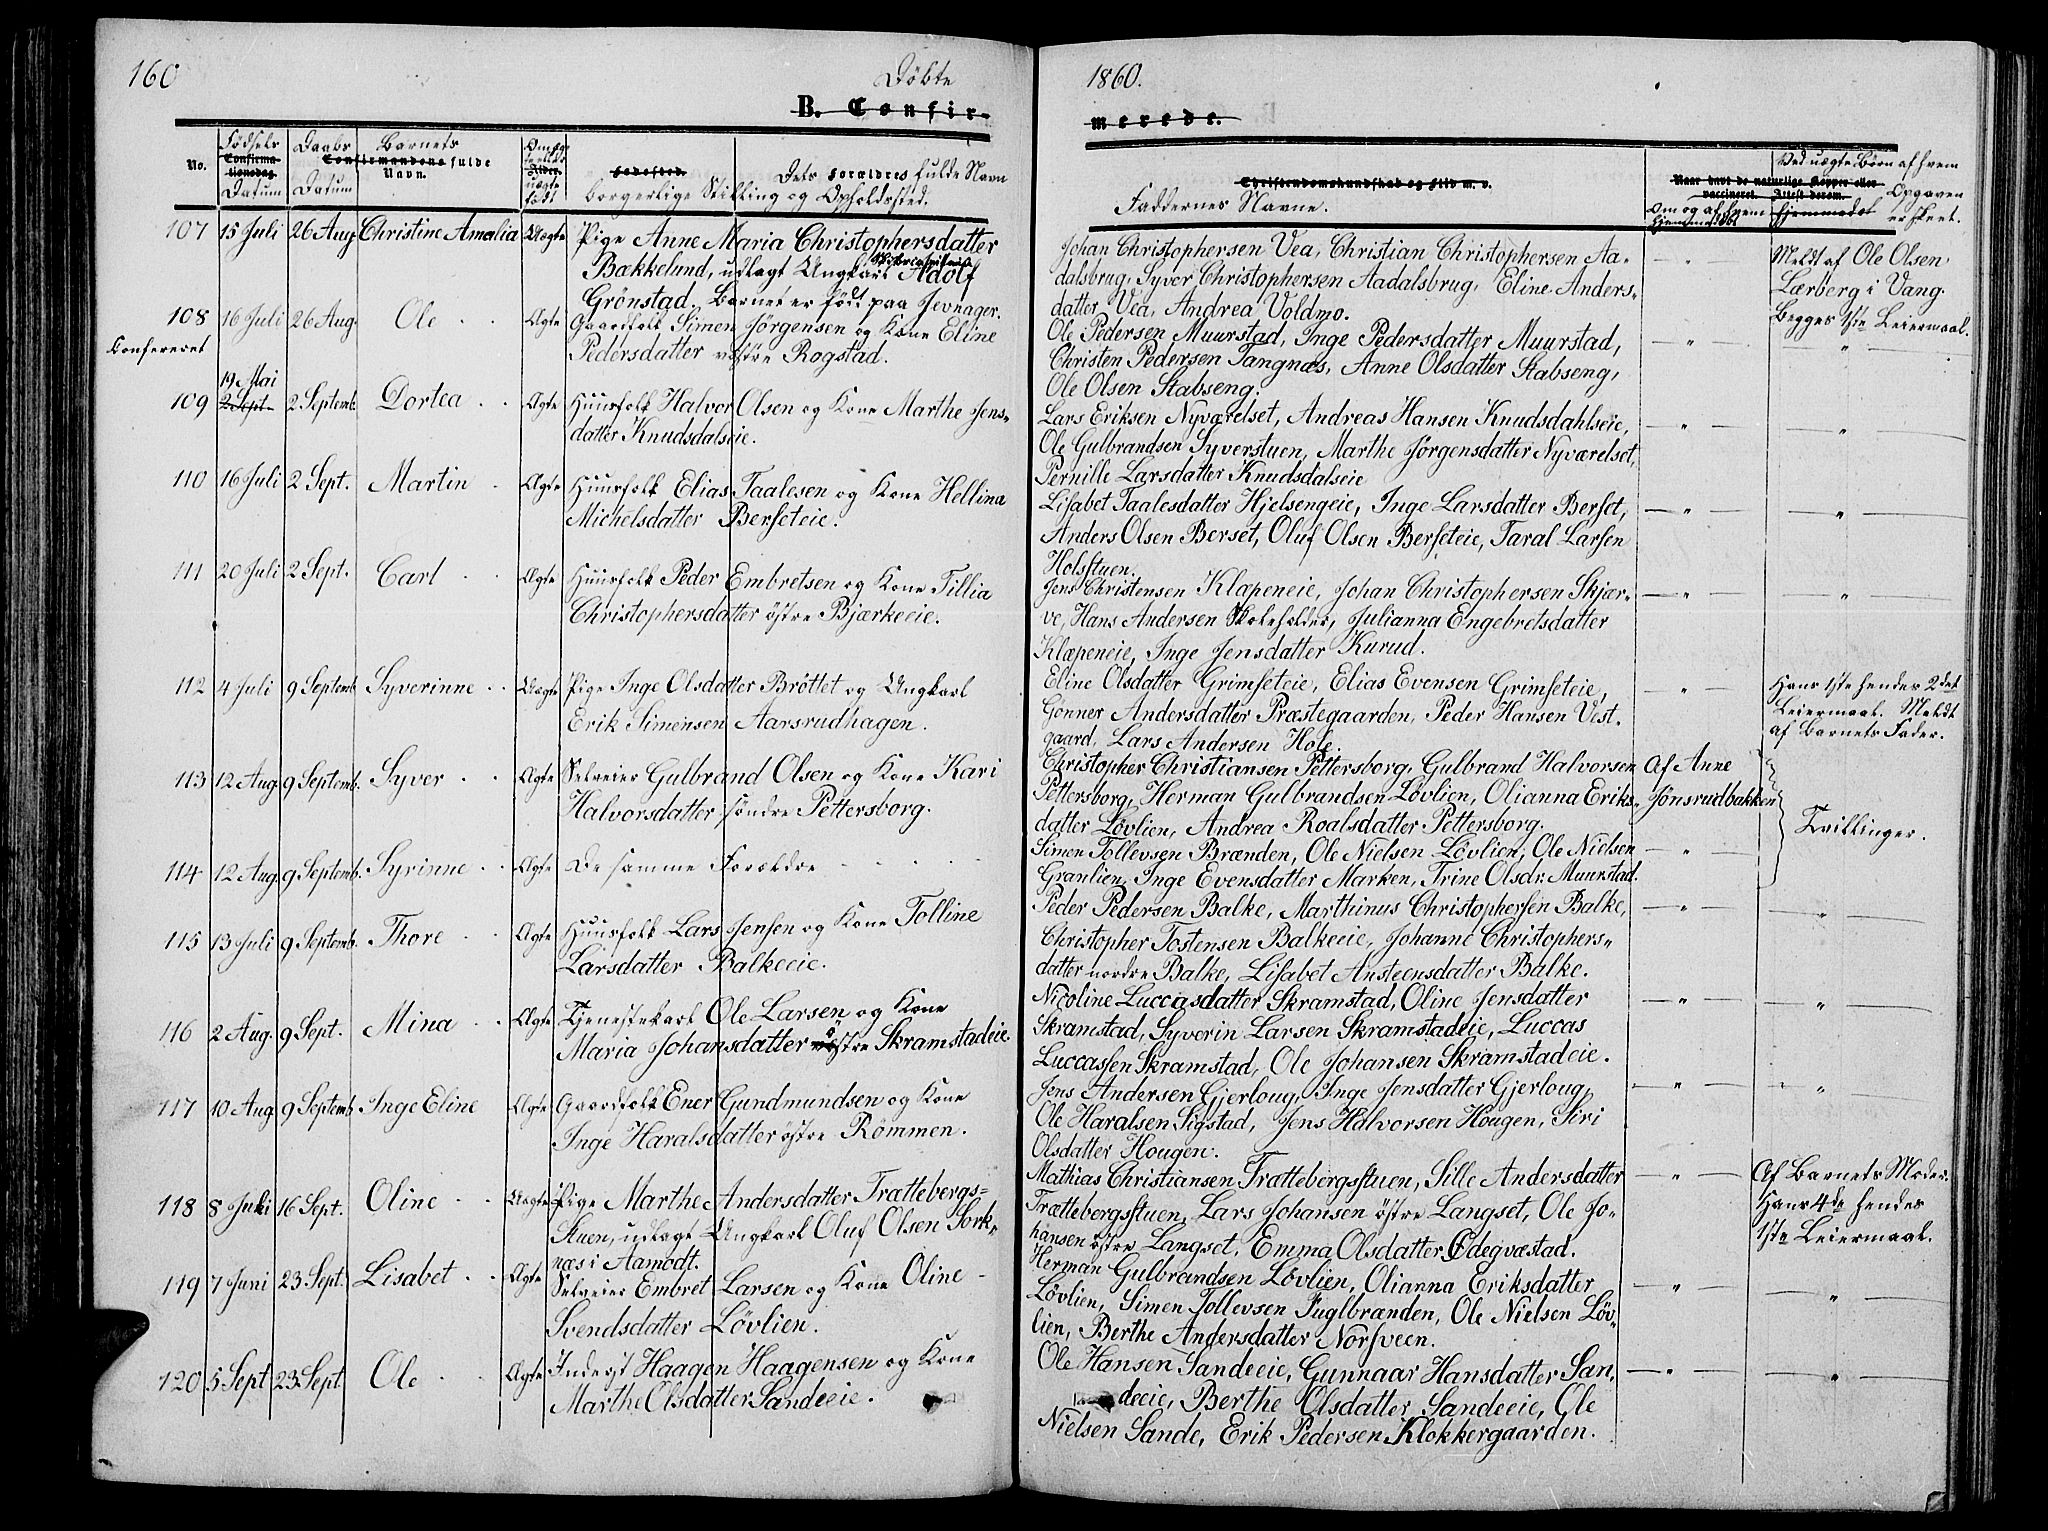 160
Döbte
B. Confir-
No.
Födsels
Confirma-
tionsdag.
Datum
Daabs
Datum
Barnets
Confirmandens fulde
Navn.
Dets Forældres fulde Navn
borgerlige Stilling og Opholdssted.
107 15 Juli 26 Aug. Christine Amalia Uægte Pige Anne Maria Christophersdatter
Bakkelund, udlagt Ungkarl Adolf
Grönstad. Barnet er födt paa Jevnager.
108 16 Juli 26 Aug. Ole Ægte Gaardfolk Simen Jörgensen og Kone Eline
Confereret
Pedersdatter vestre Rogstad.
19 Mai
109 2 Sept. 2 Septemb. Dortea Ægte Huusfolk Halvor Olsen og Kone Marthe Jens-
datter Knudsdalseie.
110 16 Juli 2 Sept. Martin Ægte Huusfolk Elias Taalesen og Kone Hellina
Michelsdatter Berseteie.
111 20 Juli 2 Sept. Carl Ægte Huusfolk Peder Embretsen og Kone Tillia
Christophersdatter östre Bjærkeeie.
112 4 Juli 9 Septemb. Syverinne Uægte Pige Inge Olsdatter Bröttet og Ungkarl
Erik Simensen Aarsrudhagen.
113 12 Aug. 9 Septemb. Syver Ægte Selveier Gulbrand Olsen og Kone Kari
Halvorsdatter söndre Pettersborg.
114 12 Aug. 9 Septemb. Syrinne Ægte De samme Forældre
115 13 Juli 9 Septemb. Thore Ægte Huusfolk Lars Jensen og Kone Tolline
Larsdatter Balkeeie.
116 2 Aug. 9 Sept. Mina Ægte Tjenestekarl Ole Larsen og Kone
Maria Johansdatter östre Skramstadeie
117 10 Aug 9 Septemb. Inge Eline Ægte Gaardfolk Ener Gundmundsen og Kone
Inge Haralsdatter östre Römmen.
118 8 Juli 16 Sept. Oline Uægte Pige Marthe Andersdatter Trættebergs-
stuen, udlagt Ungkarl Oluf Olsen Sork-
næs i Aamodt.
119 7 Juni 23 Sept. Lisabet Ægte Selveier Embret Larsen og Kone Oline
Svendsdatter Lövlien.
120 5 Sept 23 Sept. Ole Ægte Inderst Haagen Haagensen og Kone
Marthe Olsdatter Sandeeie.
1860.
merede.
Christendomskundskab og Flid m. v.
Faddernes Navne.
Naar havt de naturlige Kopper eller
vaccineret. Attest derom.
Om og af hvem
hjemmedöbt
Ved uægte Börn af hvem
Opgaven
er skeet.
Johan Christophersen Vea, Christian Christophersen Aa-
dalsbrug, Syver Christophersen Aadalsbrug, Eline Anders-
datter Vea, Andrea Voldmo.
Meldt af Ole Olsen
Lærberg i Vang.
Begges 1ste Leiermaal.
Ole Pedersen Muurstad, Inge Pedersdatter Muurstad,
Christen Pedersen Tangnæs, Anne Olsdatter Stabseng,
Ole Olsen Stabseng.
Lars Eriksen Nyværelset, Andreas Hansen Knudsdahlseie,
Ole Gulbrandsen Syverstuen, Marthe Jörgensdatter Nyværelset,
Pernille Larsdatter Knudsdalseie
Lisabet Taalesdatter Hjelsengeie, Inge Larsdatter Berset,
Anders Olsen Berset, Oluf Olsen Berseteie, Taral Larsen
Holsstuen.
Jens Christensen Klæpeneie, Johan Christophersen Skjær-
ve, Hans Andersen Skoleholder, Julianna Engebretsdatter
Klæpeneie, Inge Jensdatter Kurud.
Eline Olsdatter Grimseteie, Elias Evensen Grimseteie,
Gönner Andersdatter Præstegaarden, Peder Hansen Vest-
gaard, Lars Andersen Hole.
Hans 1ste hendes 2det
Leiermaal. Meldt
af Barnets Fader.
Christopher Christiansen Pettersborg, Gulbrand Halvorsen
Pettersborg, Herman Gulbrandsen Lövlien, Olianna Eriks-
datter Lövlien, Andrea Roalsdatter Pettersborg.
Af Anne
Jönsrudbakken
Tvillinger.
Simen Tollevsen Brænden, Ole Nielsen Lövlien, Ole Nielsen
Granlien, Inge Evensdatter Marken, Trine Olsdr. Muurstad.
Peder Pedersen Balke, Marthinus Christophersen Balke,
Christopher Tostensen Balkeeie, Johanne Christophers-
datter nordre Balke, Lisabet Austeensdatter Balke.
Nicoline Luccasdatter Skramstad, Oline Jensdatter
Skramstad, Syverin Larsen Skramstadeie, Luccas
Luccassen Skramstad, Ole Johansen Skramstadeie.
Jens Andersen Gjerloug, Inge Jensdatter Gjerloug,
Ole Haralsen Sigstad, Jens Halvorsen Hougen, Siri
Olsdatter Hougen.
Mathias Christiansen Trættebergsstuen, Sille Andersdatter
Trættebergsstuen, Lars Johansen östre Langset, Ole Jo-
hansen östre Langset, Emma Olsdatter Ödegvæstad.
Af Barnets Moder.
Hans 4de hendes
1ste Leiermaal.
Herman Gulbrandsen Lövlien, Olianna Eriksdatter
Lövlien, Simen Tollevsen Fuglbrænden, Ole Nielsen Löv-
lien, Berthe Andersdatter Norsveen.
Ole Hansen Sandeeie, Gunnaar Hansdatter San-
deeie, Berthe Olsdatter Sandeeie, Ole
Nielsen Sande, Erik Pedersen Klokkergaarden.